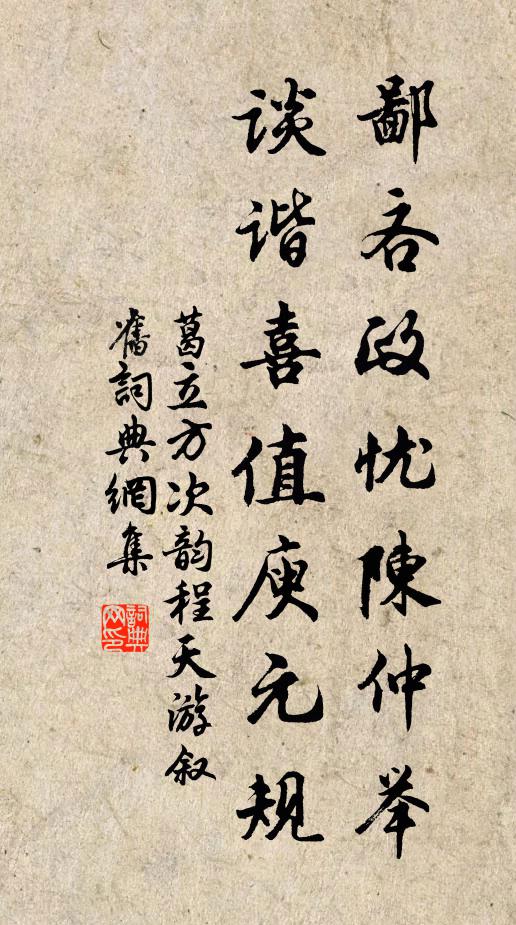 鄙吝政忧陳仲举
谈谐喜值庾元规
葛立方次韵程天游叙
舊詞典網集
詞典网印